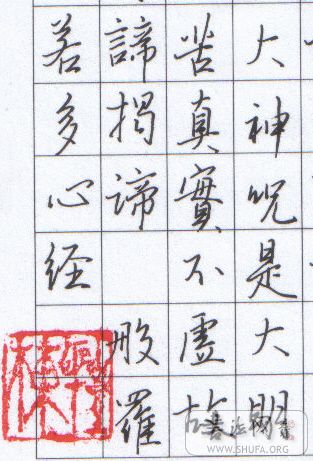 大神咒是大明
苦真實不虛故
諦揭諦 般羅
若多心经
WWW.SHUFA.ORG